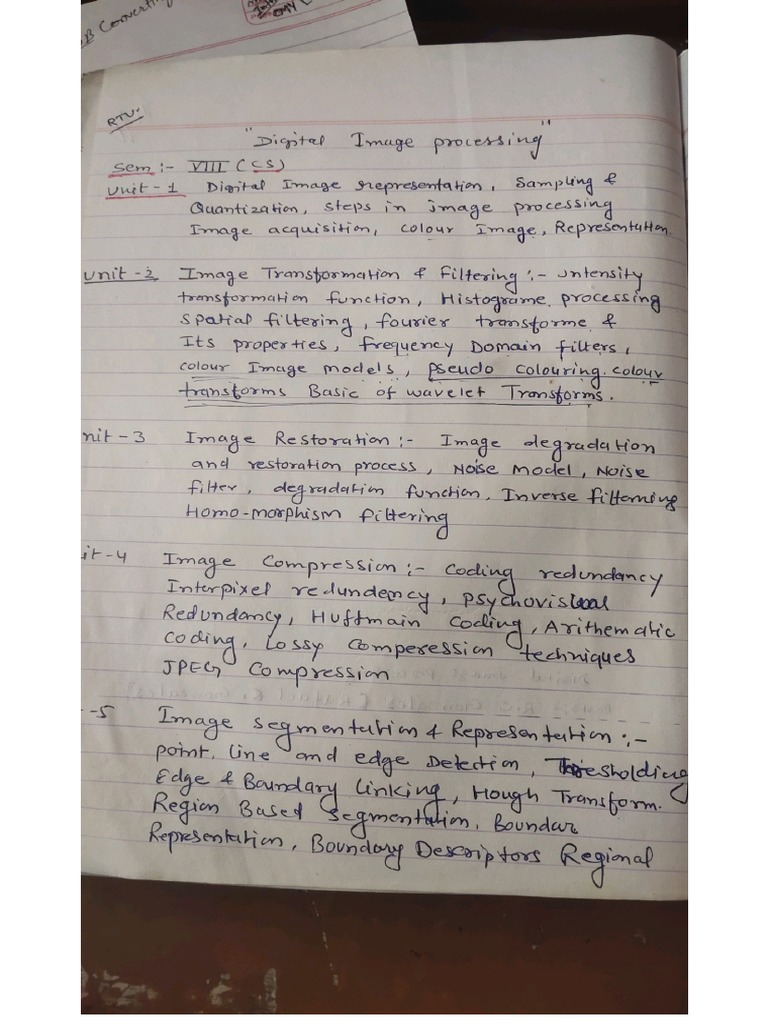 B Converting
CMY
RTU.
"Digital Image processing"
Sem :- VIII (CS)
Unit - 1 Digital Image representation, Sampling &
Quantization, steps in image processing
Image acquisition, colour Image, Representation.
Unit - 2 Image Transformation & Filtering :- Intensity
transformation function, Histograme processing
spatial filtering, fourier transforme &
Its properties, frequency Domain filters,
colour Image models, pseudo colouring. colour
transforms Basic of wavelet Transforms.
nit - 3 Image Restoration :- Image degradation
and restoration process, Noise model, Noise
filter, degradation function, Inverse filterning
Homo-morphism filtering
it - 4 Image Compression :- Coding redundancy
Interpixel redundency, psychovisual
Redundancy, Huffmain Coding, Arithematic
Coding, Lossy Comperession techniques
JPEG Compression
- 5 Image segmentation & Representation :-
point, line and edge Detection, Thresholding
Edge & Boundary linking, Hough Transform.
Region Based segmentation, Boundar
Representation, Boundary Descriptors Regional